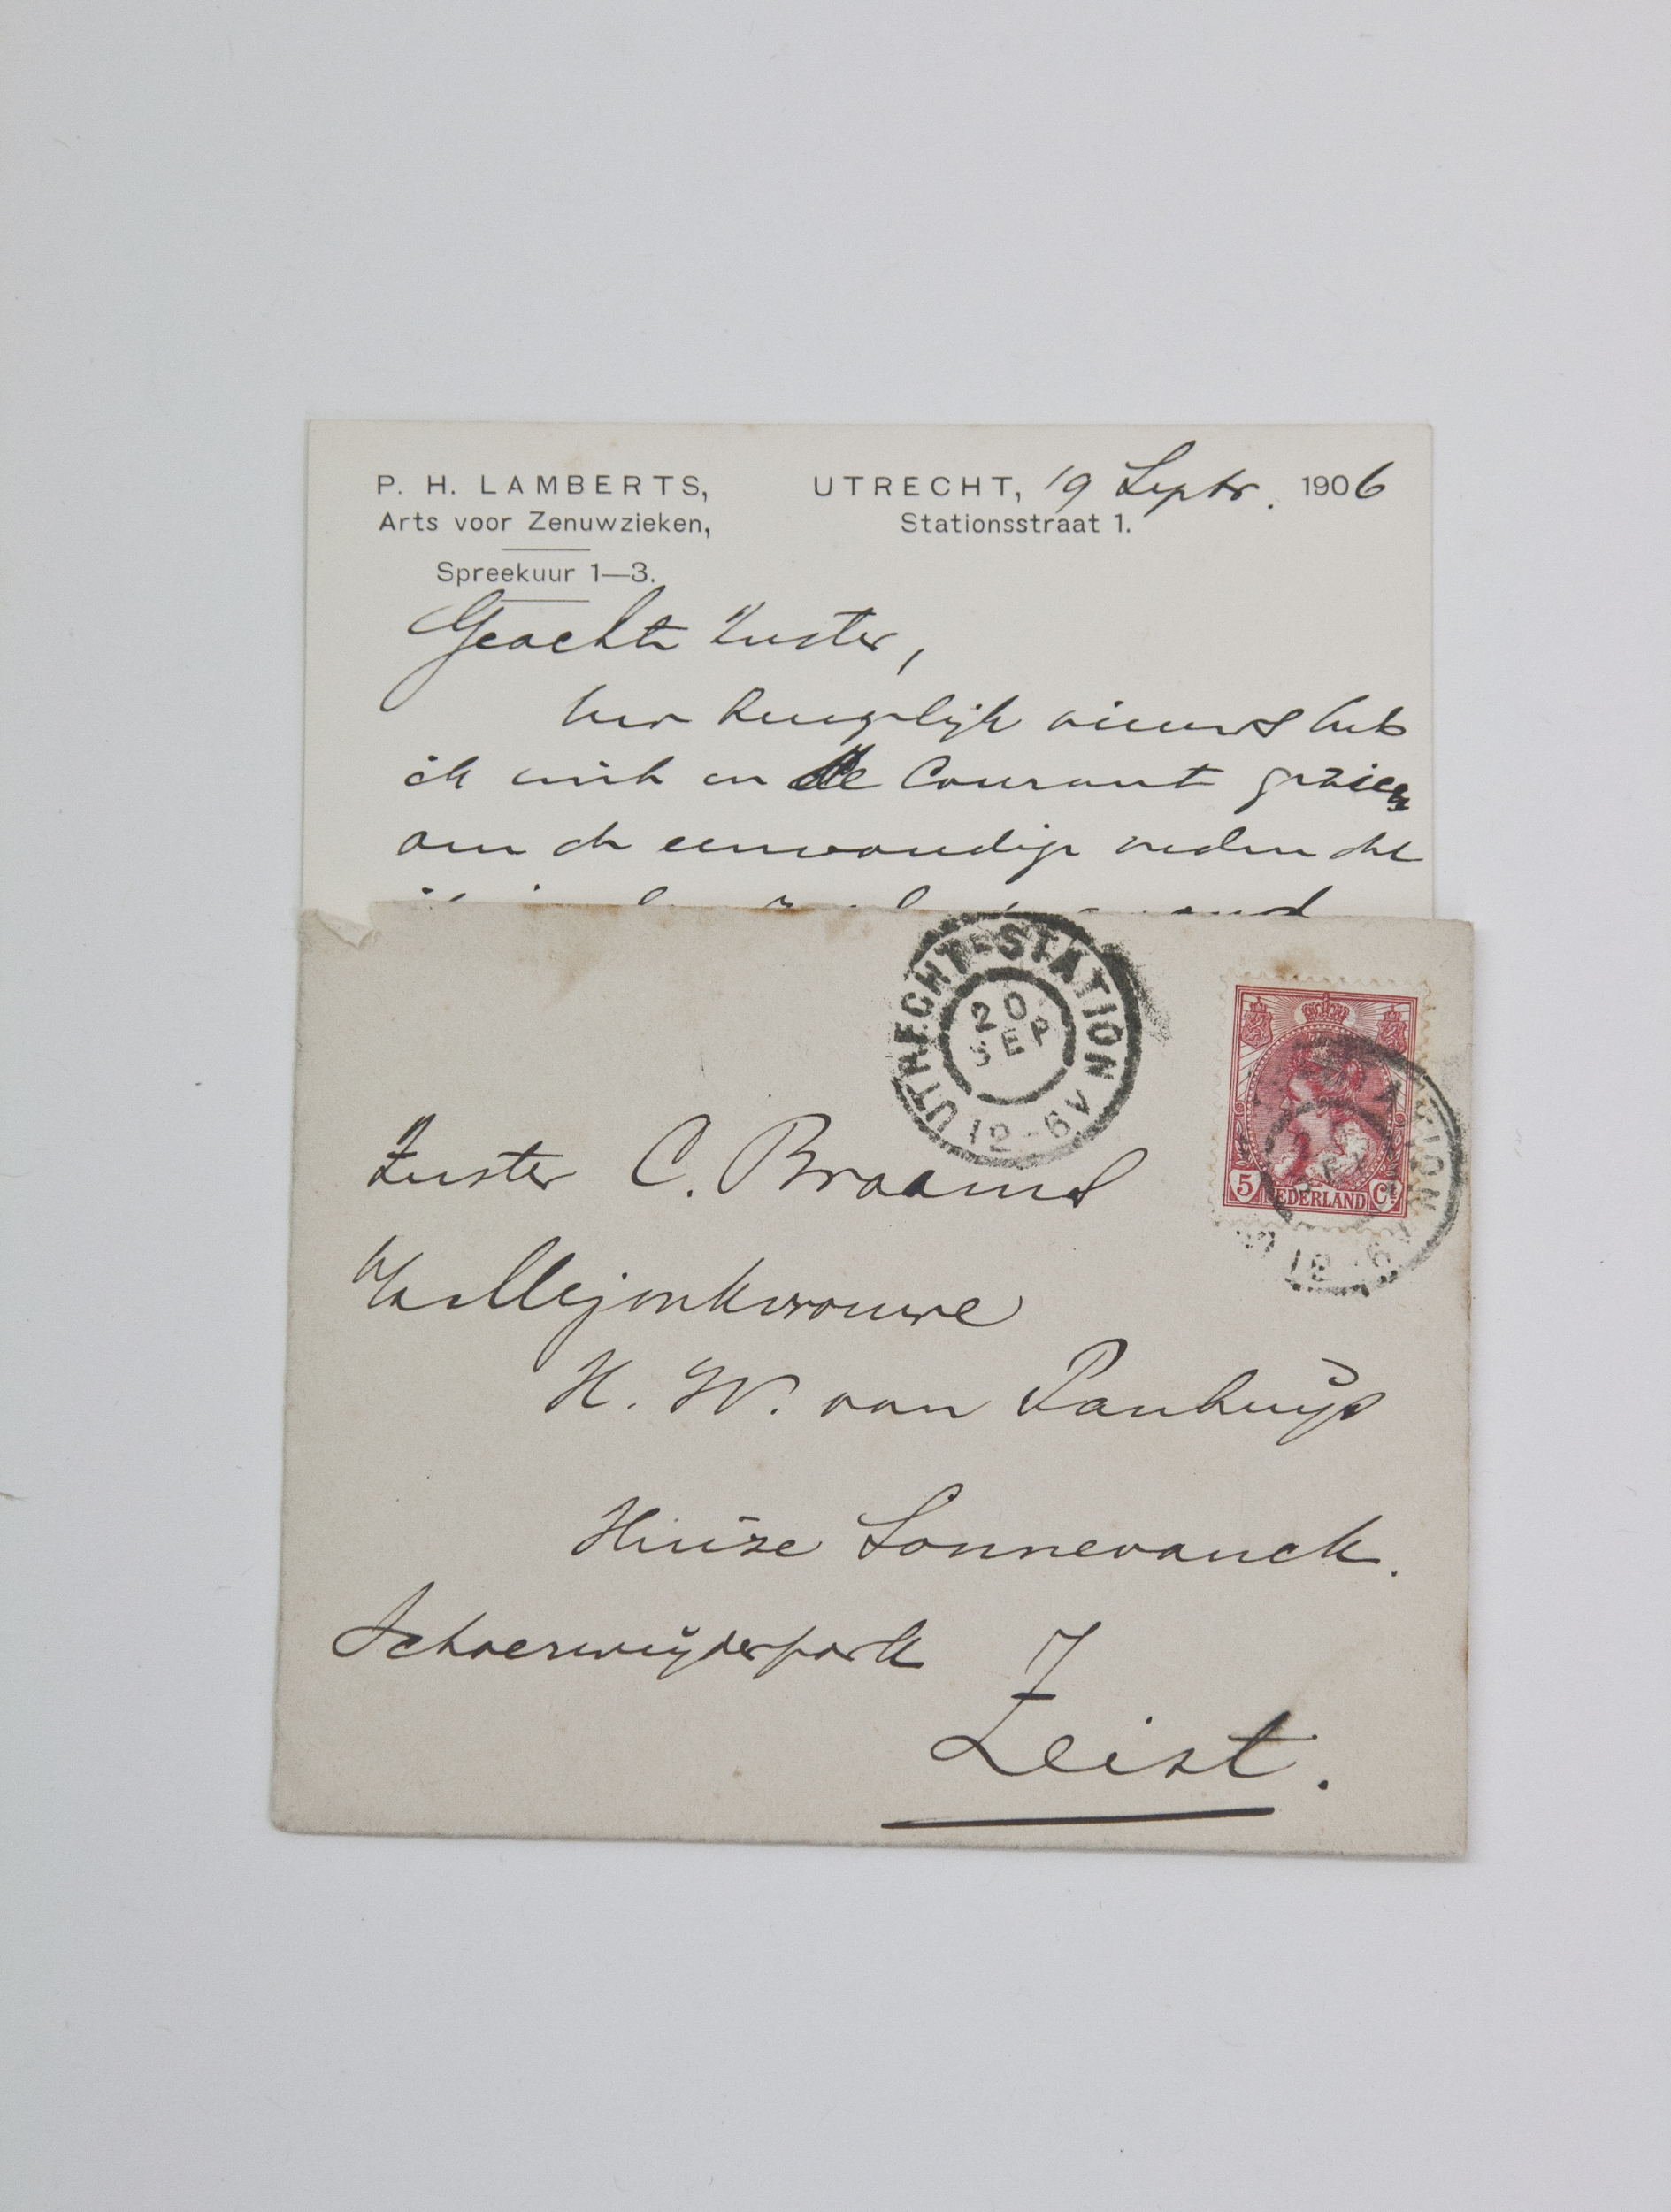 P. H. LAMBERTS,
Arts voor Zenuwzieken,
Spreekuur 1—3.
UTRECHT, 19 Septr. 1906
Stationsstraat 1.
Geachte Zuster,
heugelijk nieuws heb
ik niet in de Courant gezien
om de eenvoudige reden dat
UTRECHT-STATION
20
SEP
12-6V
5 NEDERLAND Ct
Zuster C. Braams
H. W. van Panhuijs
Huize Sonnevanck.
Schaerweijderpark
Zeist.